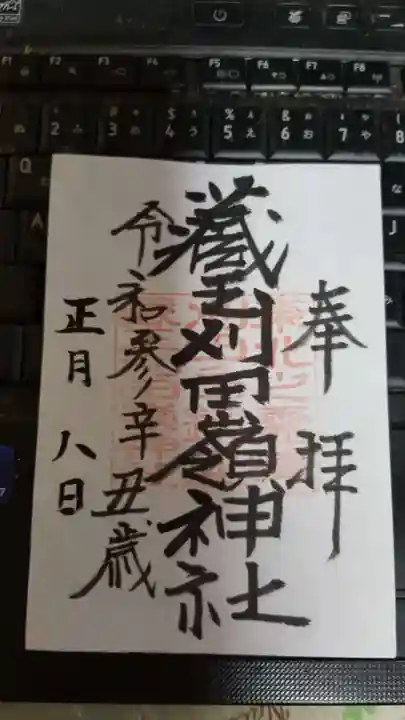 F1 F2 F3 F4 F5 F6 F7 F8
ぬ 2 ふ # 3 あ $ 4 う % 5 え & 6 お ' 7 や ( 8
Q
A
J
奉拝
藏王刈田嶺神社
令和参辛丑歳
正月八日